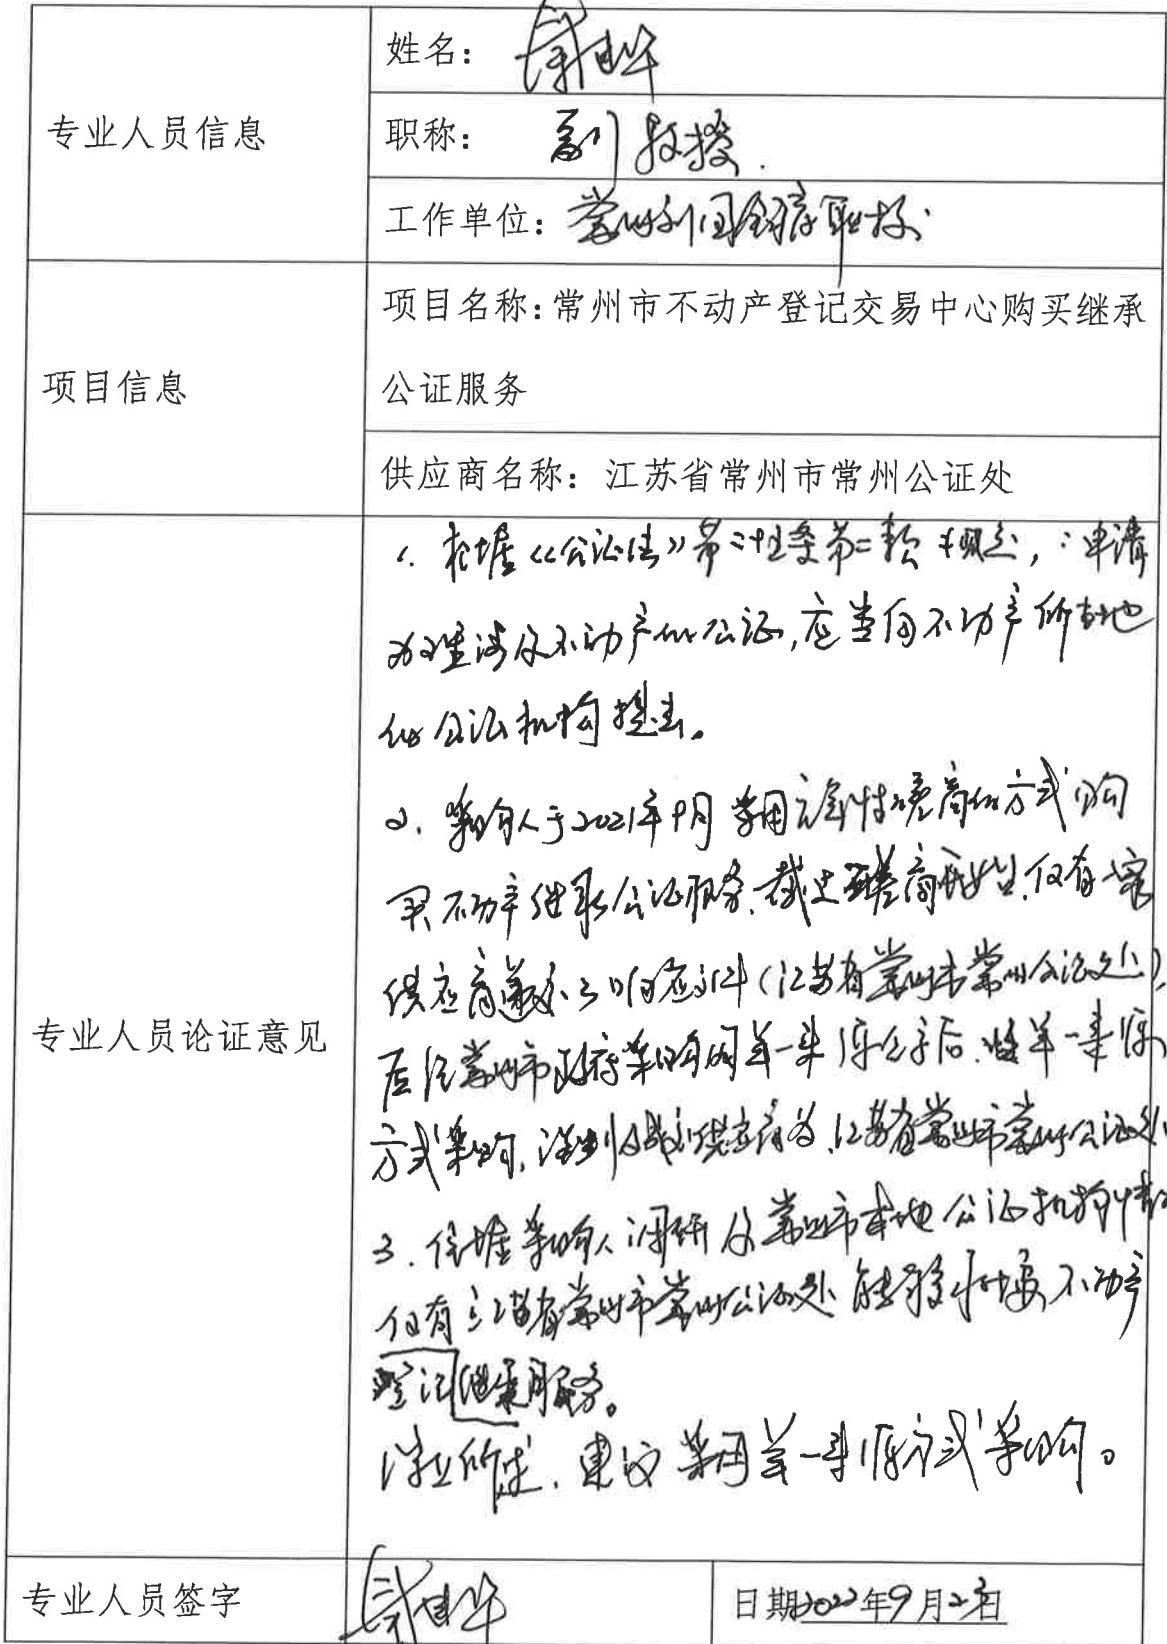 姓名：
专业人员信息
职称： 副教授.
工作单位：常州刘国钧高职校
项目名称：常州市不动产登记交易中心购买继承
项目信息
公证服务
供应商名称：江苏省常州市常州公证处
1. 根据《公证法》第二十五条第二款规定，：申请
办理涉及不动产的公证，应当向不动产所在地
的公证机构提出。
2. 采购人于2021年9月采用竞争性磋商的方式购
买不动产继承公证服务，截止至磋商开始，仅有一家
供应商递交了响应文件（江苏省常州市常州公证处），
后经常州市政府采购网单一来源公示后，以单一来源
专业人员论证意见
方式采购，成交供应商为，江苏省常州市常州公证处
3. 依据采购人调研及常州市本地公证机构情况
仅有江苏省常州市常州公证处能够承接不动产
登记继承服务。
综上所述，建议采用单一来源方式采购。
专业人员签字
日期2022年9月23日